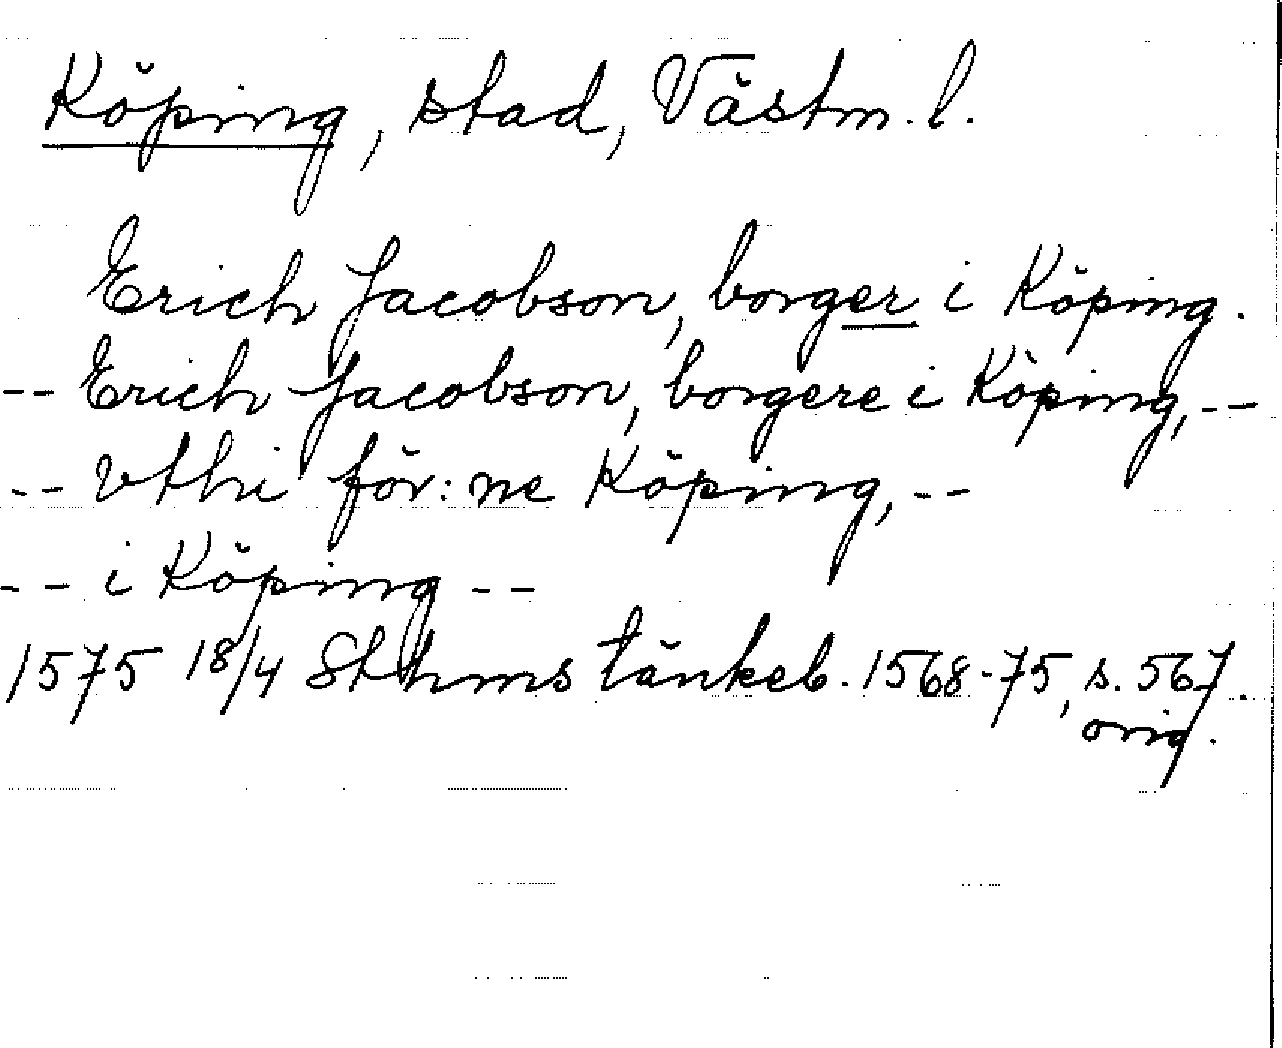 Köping, stad, Västm. l.
Erich Jacobson, borger i Köping.
-- Erich Jacobson, borgere i Köping, --
-- vthi för:ne Köping, --
-- i Köping --
1575 18/4 Sthms tänkeb. 1568-75, s. 567.
orig.